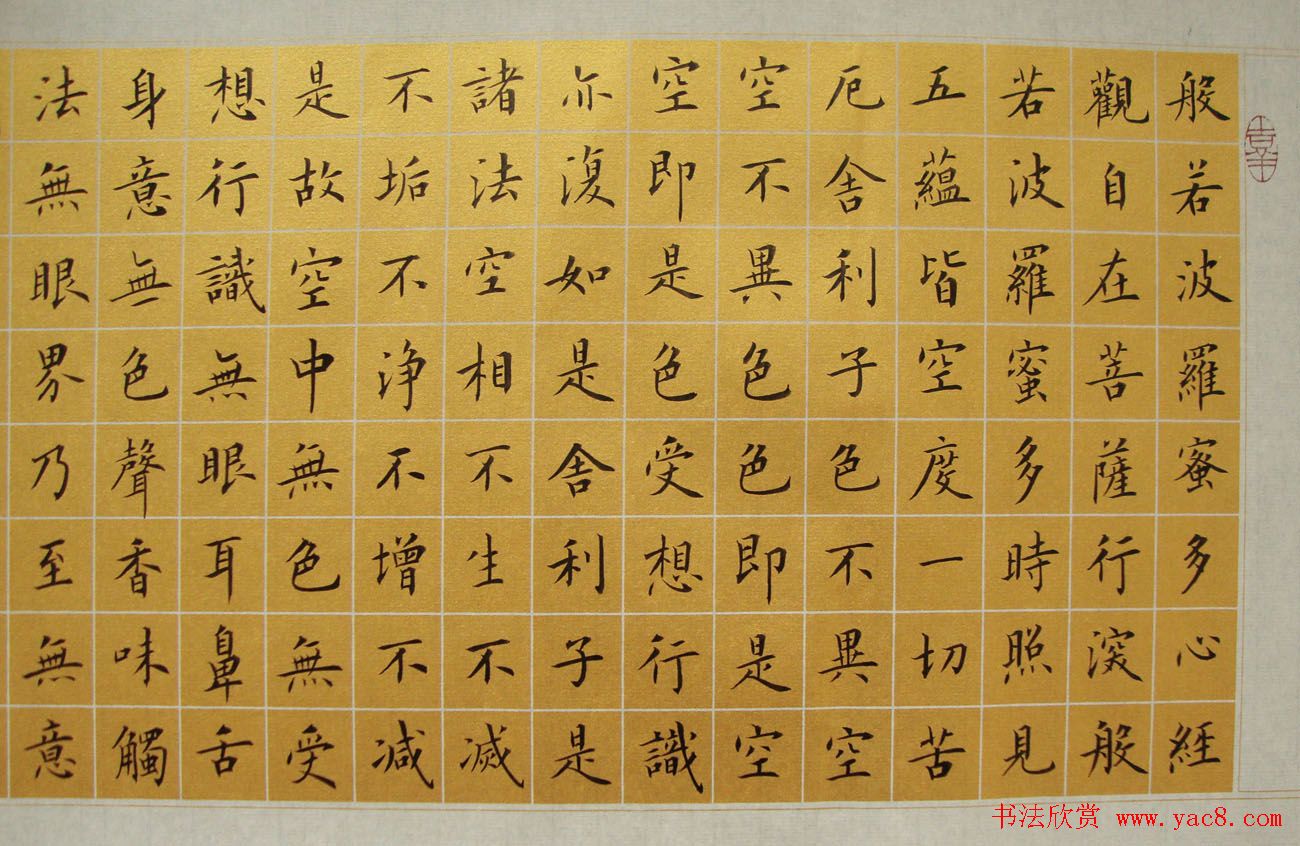 般若波羅蜜多心經
觀自在菩薩行深般
若波羅蜜多時照見
五蘊皆空度一切苦
厄舍利子色不異空
空不異色色即是空
空即是色受想行識
亦復如是舍利子是
諸法空相不生不滅
不垢不淨不增不減
是故空中無色無受
想行識無眼耳鼻舌
身意無色聲香味觸
法無眼界乃至無意
书法欣赏 www.yac8.com